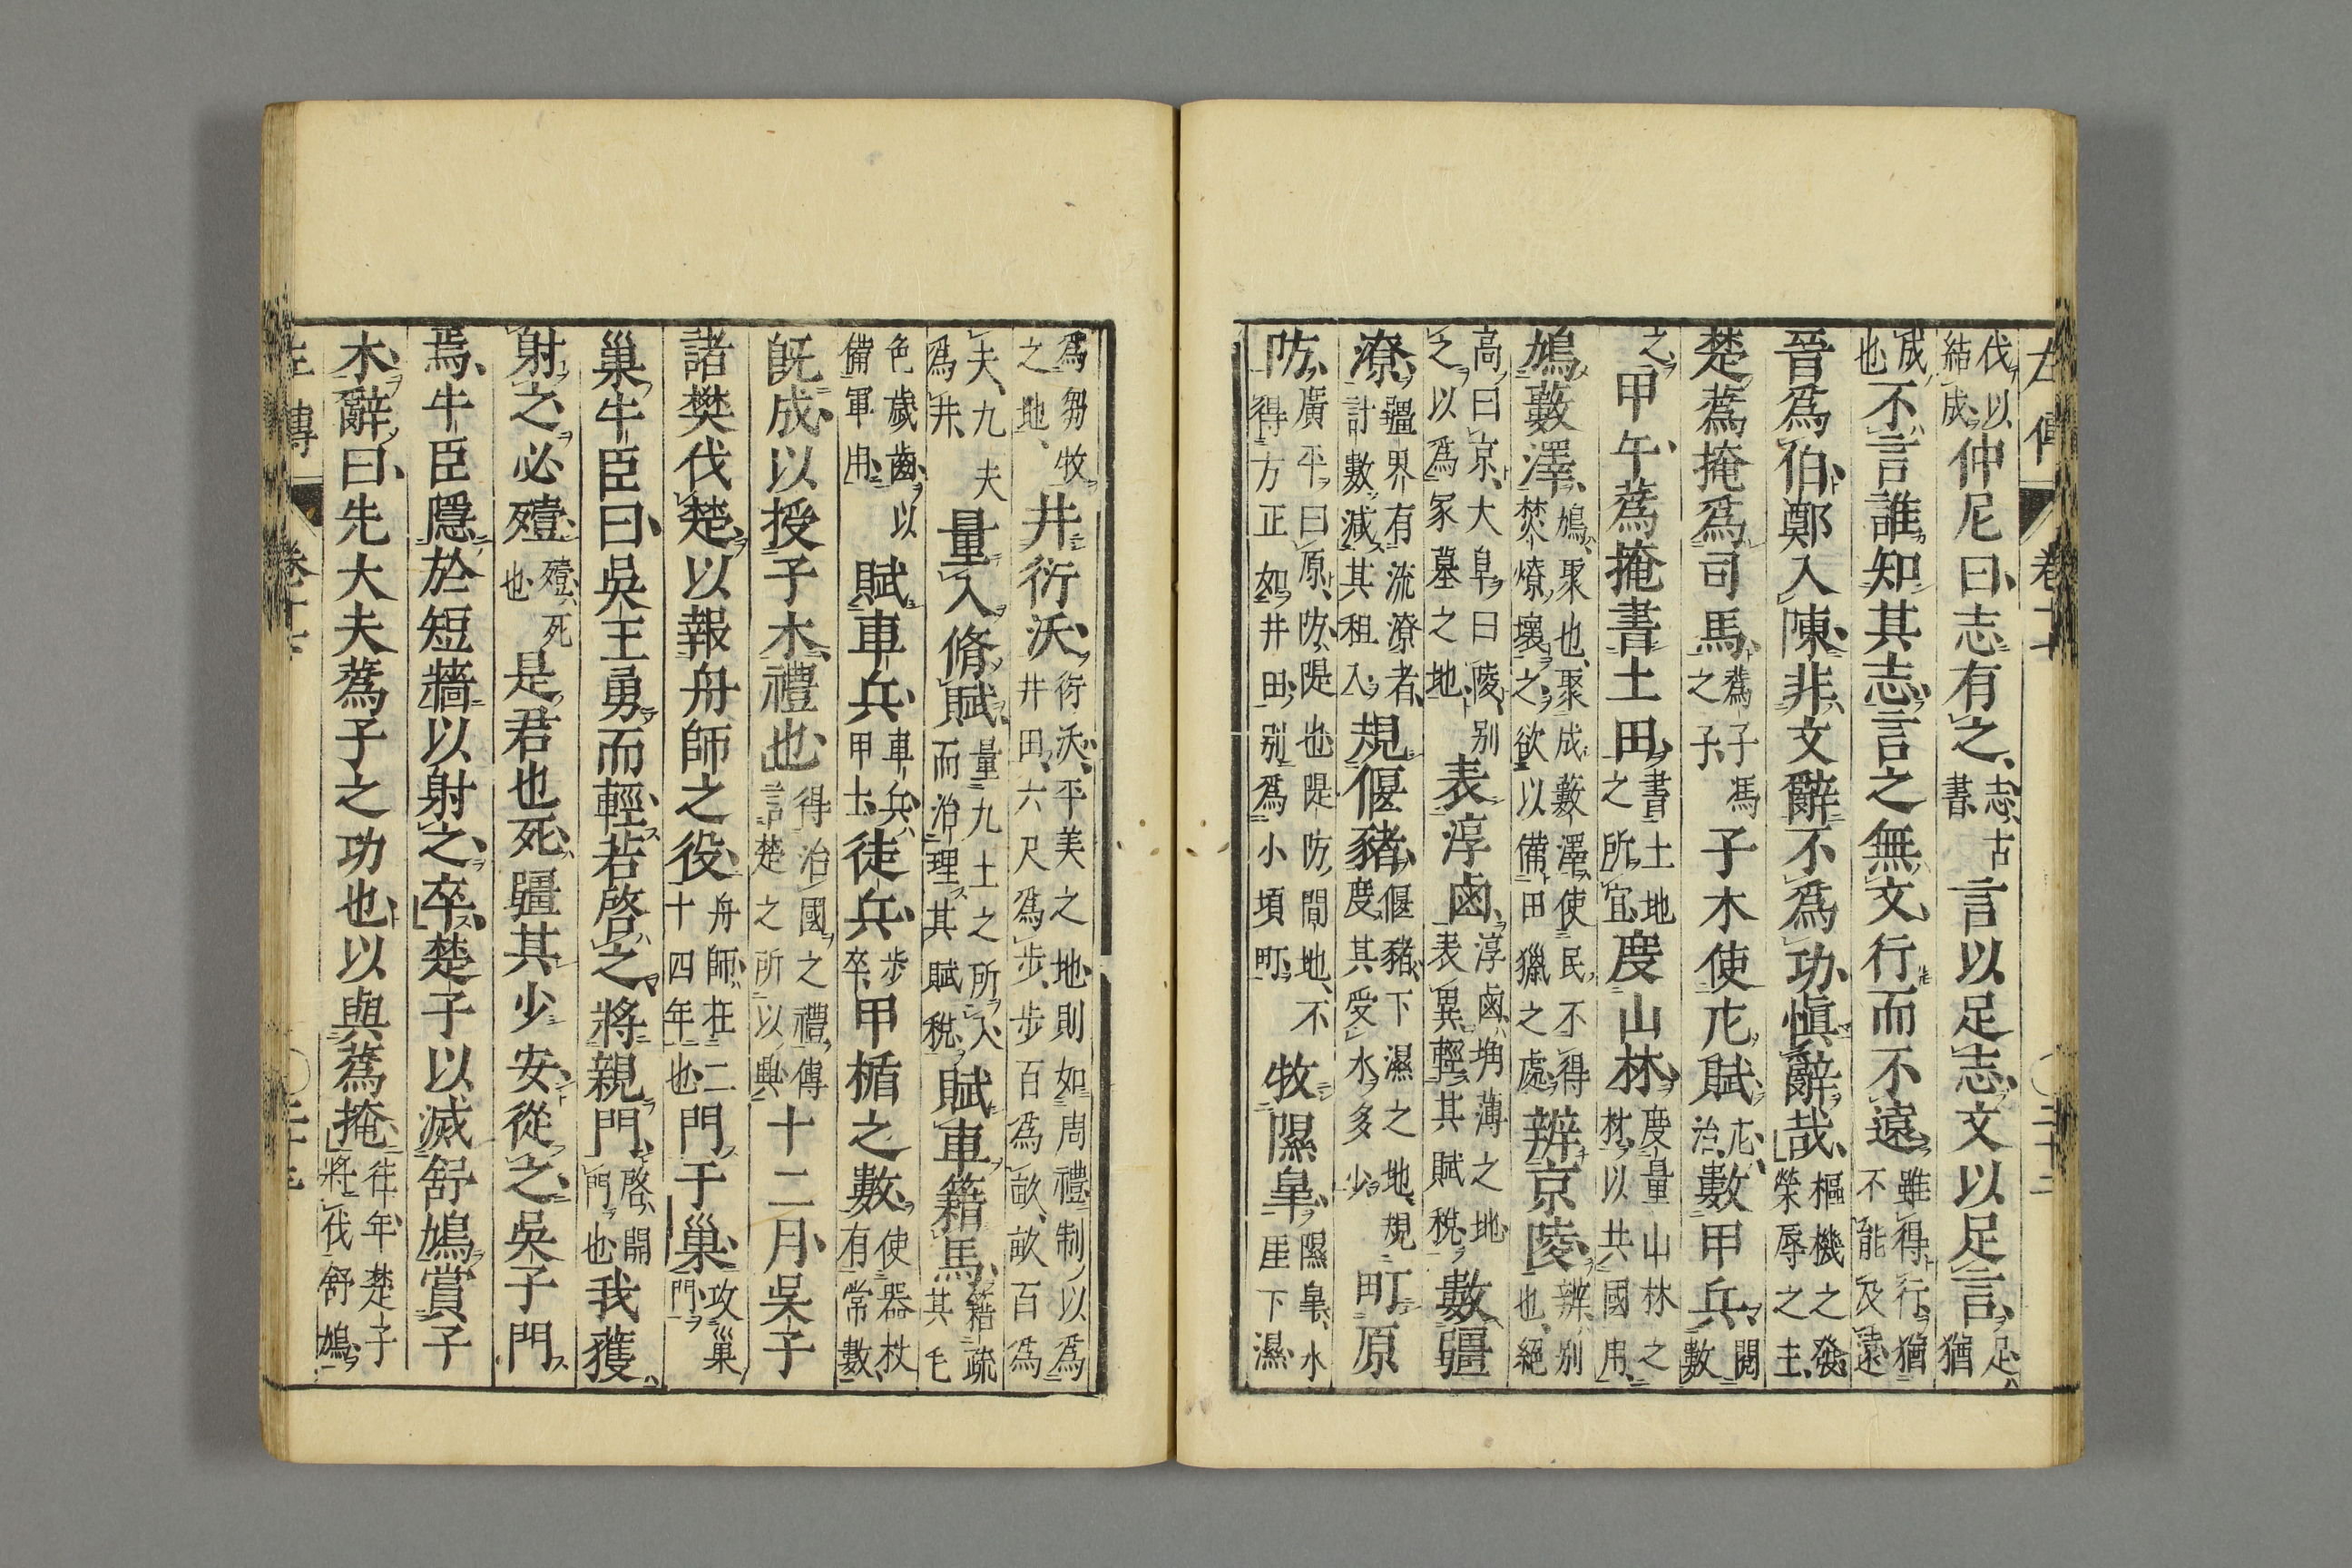 伐以結成仲尼曰志有之志古書言以足志文以足言足猶
成也不言誰知其志言之無文行而不遠雖得行猶不能及遠
晉爲伯鄭入陳非文辭不爲功愼辭哉樞機之發榮辱之主
楚蔿掩爲司馬蔿子馮之子子木使庀賦庀治數甲兵閱數
之甲午蔿掩書土田書土地之所宜度山林度量山林之材以共國用
鳩藪澤鳩聚也聚成藪澤使民不得焚燎壞之欲以備田獵之處辨京陵辨別也絕
高曰京大阜曰陵別之以爲冢墓之地表淳鹵淳鹵埆薄之地表異輕其賦稅數疆
潦疆界有流潦者計數減其租入規偃豬偃豬下濕之地規度其受水多少町原
防廣平曰原防隄也隄防間地不得方正如井田別爲小頃町牧隰皐隰皐水厓下濕
爲芻牧之地井衍沃衍沃平美之地則如周禮制以爲井田六尺爲步步百爲畝畝百爲
夫九夫爲井量入脩賦量九土之所入而治理其賦稅賦車籍馬籍疏其毛
色歲齒以備軍用賦車兵車兵甲士徒兵步卒甲楯之數使器杖有常數
旣成以授子木禮也得治國之禮傳言楚之所以興十二月吳子
諸樊伐楚以報舟師之役舟師在二十四年也門于巢攻巢門
巢牛臣曰吳王勇而輕若啓之將親門啓開門也我獲
射之必殪殪死也是君也死疆其少安從之吳子門
焉牛臣隱於短牆以射之卒楚子以滅舒鳩賞子
木辭曰先大夫蔿子之功也以與蔿掩往年楚子將伐舒鳩
左傳